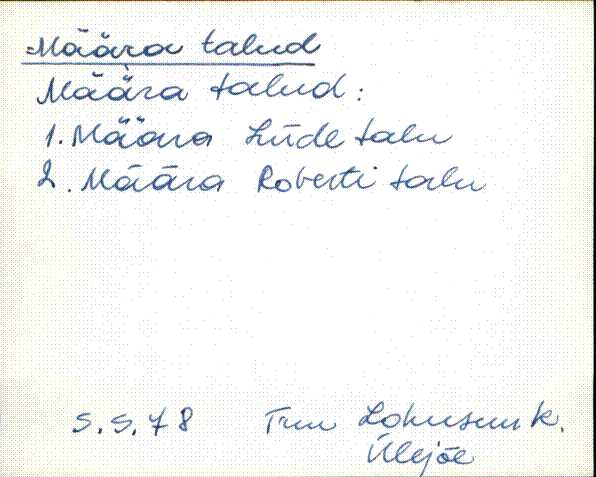 Määra talud
Määra talud:
1. Määra Liide talu
2. Määra Roberti talu
5.5.78 Trm Lohusuu k.
Ülejõe